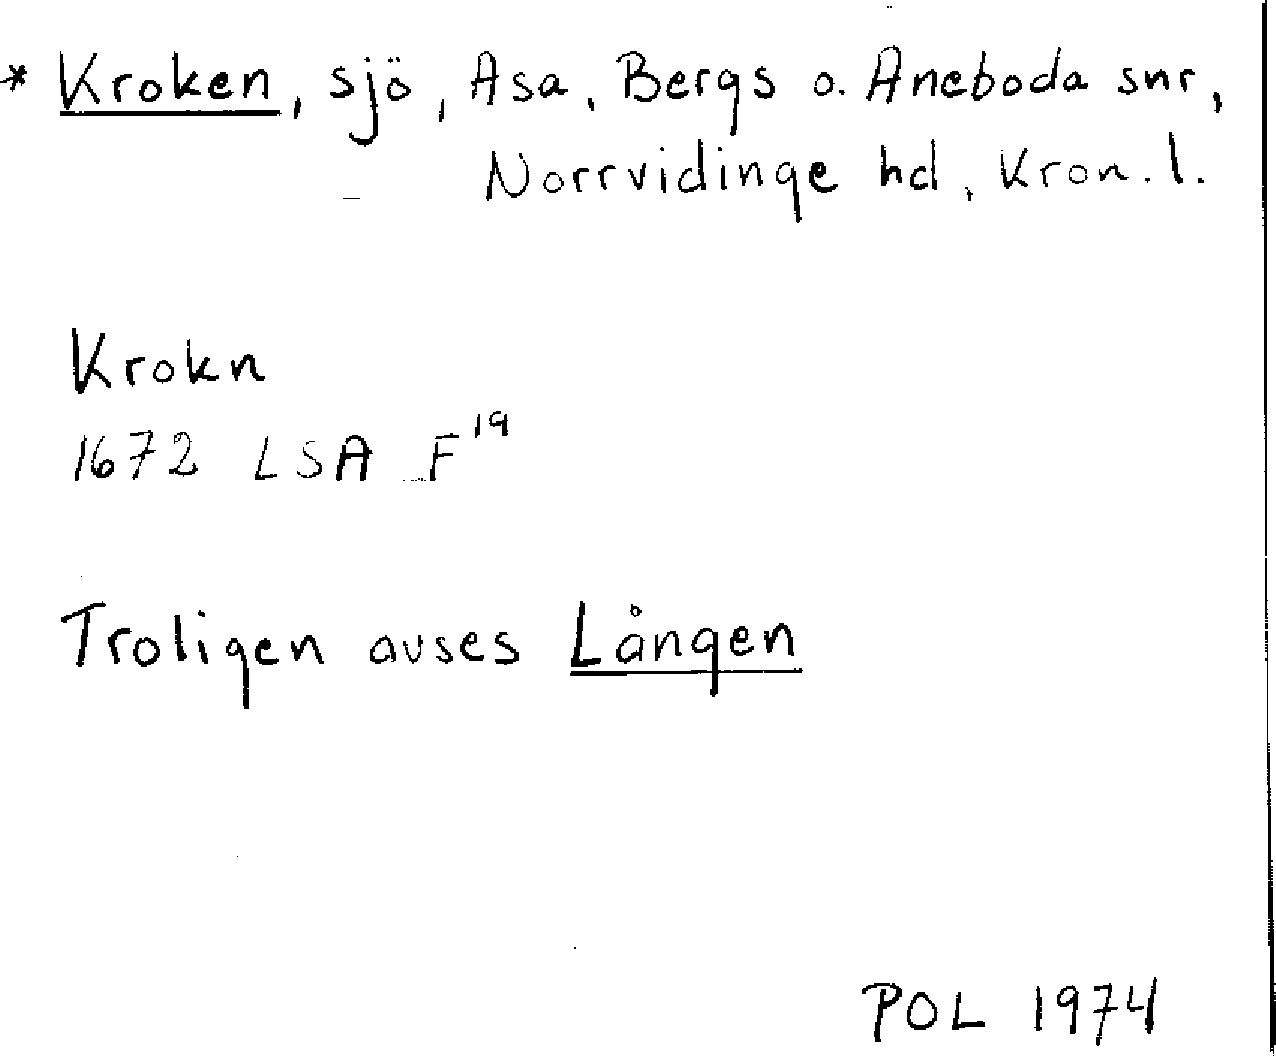 * Kroken, sjö, Asa, Bergs o. Aneboda snr,
Norrvidinge hd, Kron. l.
Krokn
1672 LSA F19
Troligen avses Lången
POL 1974